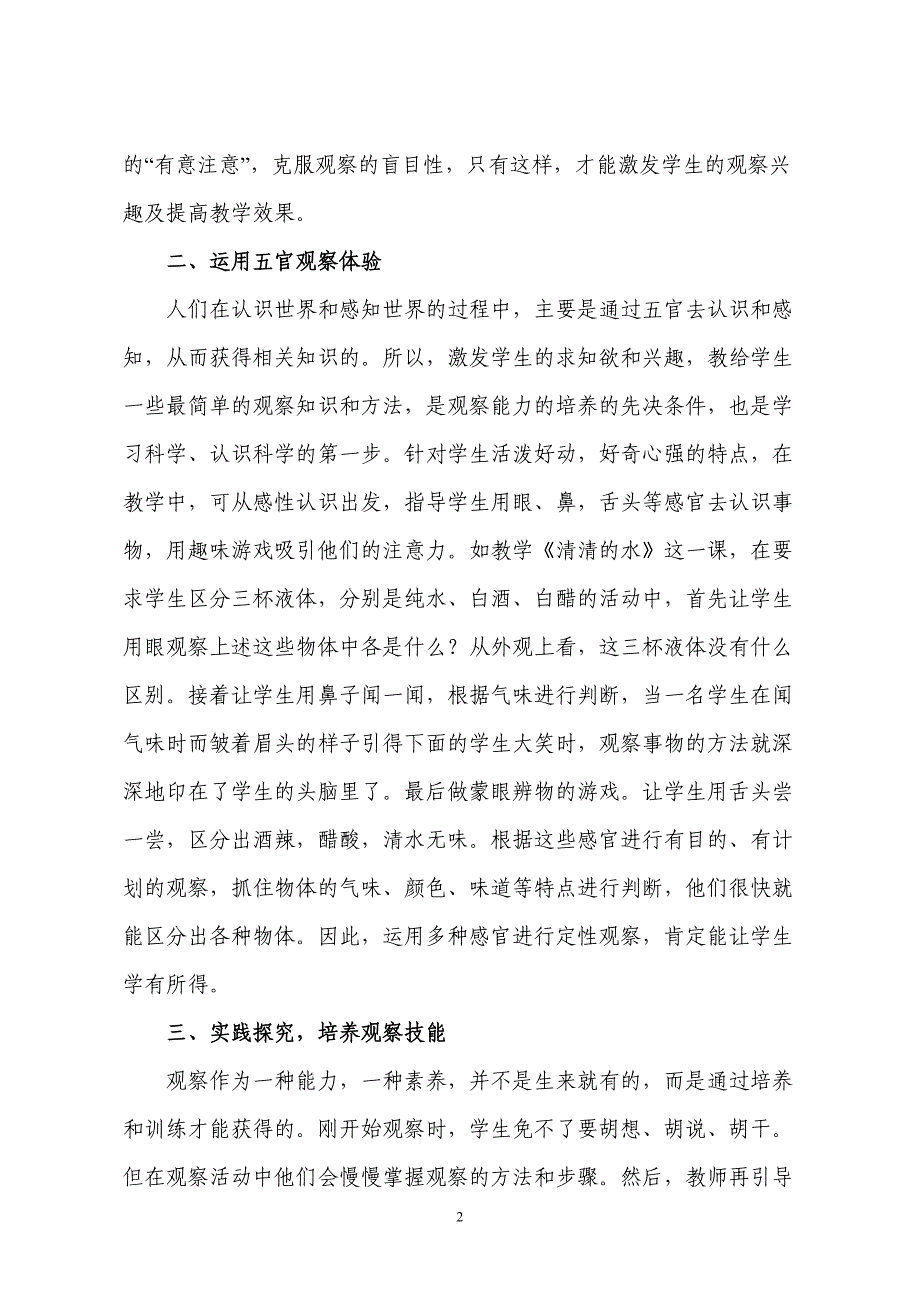 的“有意注意”，克服观察的盲目性，只有这样，才能激发学生的观察兴
趣及提高教学效果。
二、运用五官观察体验
人们在认识世界和感知世界的过程中，主要是通过五官去认识和感
知，从而获得相关知识的。所以，激发学生的求知欲和兴趣，教给学生
一些最简单的观察知识和方法，是观察能力的培养的先决条件，也是学
习科学、认识科学的第一步。针对学生活泼好动，好奇心强的特点，在
教学中，可从感性认识出发，指导学生用眼、鼻，舌头等感官去认识事
物，用趣味游戏吸引他们的注意力。如教学《清清的水》这一课，在要
求学生区分三杯液体，分别是纯水、白酒、白醋的活动中，首先让学生
用眼观察上述这些物体中各是什么？从外观上看，这三杯液体没有什么
区别。接着让学生用鼻子闻一闻，根据气味进行判断，当一名学生在闻
气味时而皱着眉头的样子引得下面的学生大笑时，观察事物的方法就深
深地印在了学生的头脑里了。最后做蒙眼辨物的游戏。让学生用舌头尝
一尝，区分出酒辣，醋酸，清水无味。根据这些感官进行有目的、有计
划的观察，抓住物体的气味、颜色、味道等特点进行判断，他们很快就
能区分出各种物体。因此，运用多种感官进行定性观察，肯定能让学生
学有所得。
三、实践探究，培养观察技能
观察作为一种能力，一种素养，并不是生来就有的，而是通过培养
和训练才能获得的。刚开始观察时，学生免不了要胡想、胡说、胡干。
但在观察活动中他们会慢慢掌握观察的方法和步骤。然后，教师再引导
2